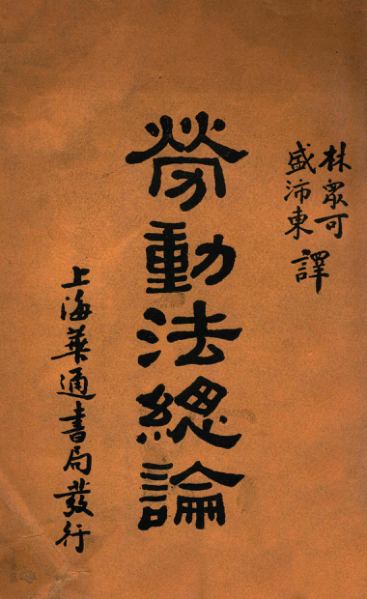 林眾可
盛沛東 譯
勞動法總論
上海華通書局發行